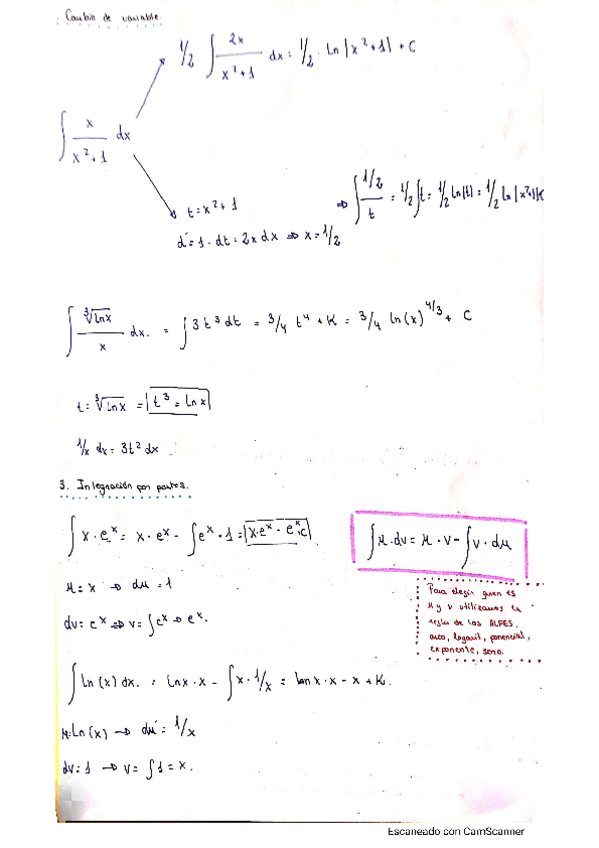 Cambio de variable.
1/2 ∫ 2x/(x²+1) dx = 1/2 · Ln |x²+1| + C
∫ x/(x²+1) dx
t = x²+1 ⇒ ∫ (1/2)/t = 1/2 ∫t = 1/2 Ln|t| = 1/2 Ln |x²+1| K
d = 1 · dt = 2x dx ⇒ x = 1/2
∫ ∛Lnx / x dx. = ∫ 3t³ dt = 3/4 t⁴ + K = 3/4 Ln(x)^4/3 + C
t = ∛Lnx = t³ = Lnx
1/x dx = 3t² dx
3. Integración por partes.
∫ x · eˣ = x · eˣ - ∫ eˣ · 1 = x·eˣ - eˣ + C
∫ μ · dv = μ · v - ∫ v · dμ
μ = x → dμ = 1
dv = eˣ ⇒ v = ∫ eˣ → eˣ.
Para elegir quien es
μ y v utilizamos la
regla de los ALPES.
arco, logarit, ponencial,
exponente, seno.
∫ Ln (x) dx. = Lnx · x - ∫ x · 1/x = lan x · x - x + K.
μ = Ln (x) → dμ = 1/x
dv = 1 → v = ∫ 1 = x.
Escaneado con CamScanner